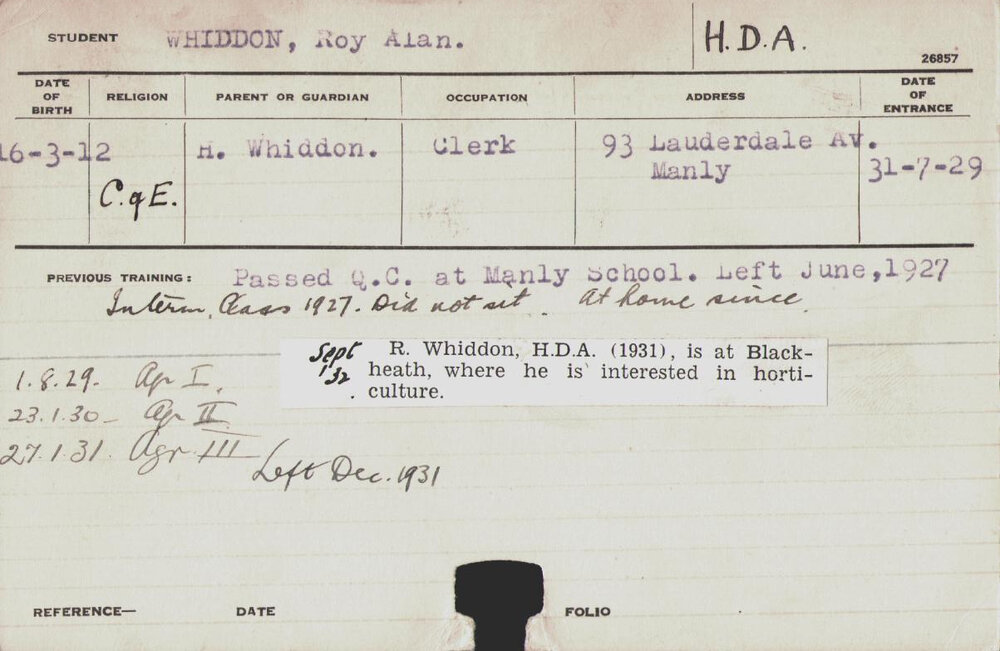 STUDENT WHIDDON, Roy Alan. H.D.A.
26857
DATE OF BIRTH RELIGION PARENT OR GUARDIAN OCCUPATION ADDRESS DATE OF ENTRANCE
16-3-12 H. Whiddon. Clerk 93 Lauderdale Av.
Manly 31-7-29
C. of E.
PREVIOUS TRAINING: Passed Q.C. at Manly School. Left June, 1927
Interm. Class 1927. Did not sit. At home since
Sept '32
R. Whiddon, H.D.A. (1931), is at Black-
heath, where he is interested in horti-
culture.
1.8.29. Agr I.
23.1.30 - Agr II
27.1.31. Agr III
Left Dec. 1931
REFERENCE— DATE FOLIO